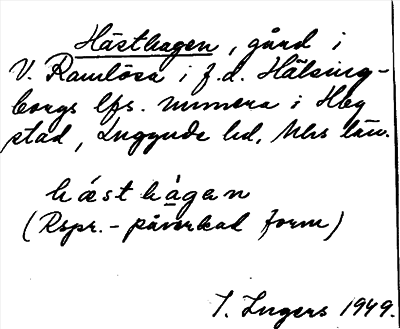 Hästhagen, gård i
V. Ramlösa i f.d. Hälsing-
borgs lfs. numera i Hbg
stad, Luggude hd, Mhs län.
hæsthágen
(Rspr.-påverkad form)
I. Ingers 1949.